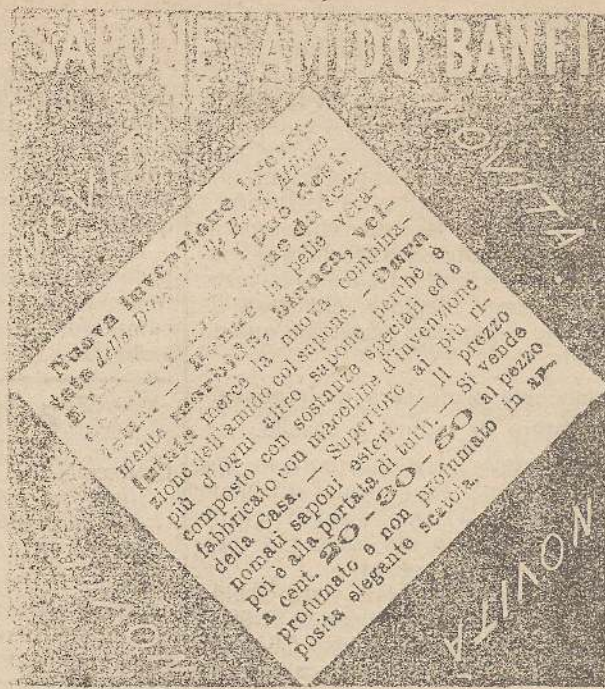 SAPONE AMIDO BANFI
NOVITÀ
NOVITÀ
Nuova Invenzione brevet-
tata della Ditta Achille Banfi, Milano
può desi-
da toe-
la pelle vera-
mente morbida, bianca, vel-
lutata mercè la nuova combina-
zione dell'amido col sapone. - Dura
più d'ogni altro sapone perchè è
composto con sostanze speciali ed è
fabbricato con macchine d'invenzione
della Casa. — Superiore ai più ri-
nomati saponi esteri. — Il prezzo
poi è alla portata di tutti. — Si vende
a cent. 20 - 30 - 50 al pezzo
profumato e non profumato in ap-
posita elegante scatola.
NOVITÀ
NOVITÀ